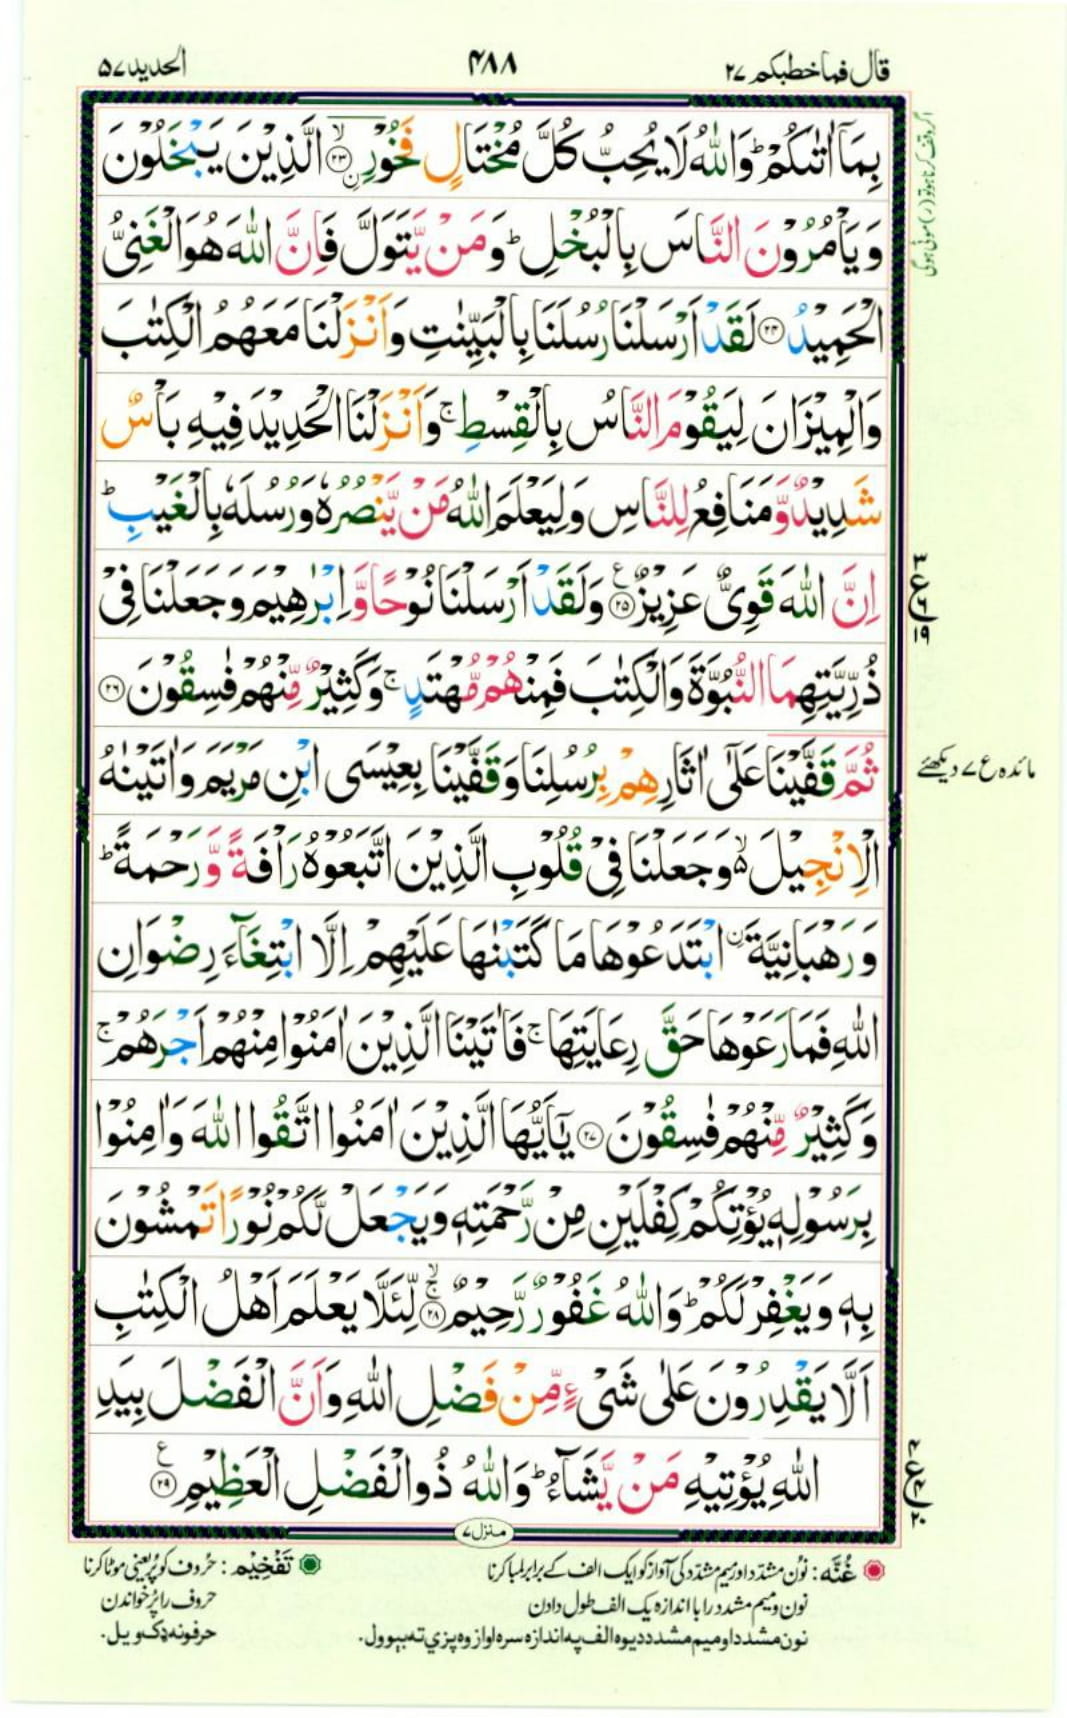 قال فما خطبكم ۲۷
۴۸۸
الحدید ۵۷
بِمَاۤ اٰتٰىكُمْ ؕ وَاللّٰهُ لَا یُحِبُّ كُلَّ مُخْتَالٍ فَخُوْرِ ۙ﴿۲۳﴾ ِ۟الَّذِیْنَ یَبْخَلُوْنَ
وَیَاْمُرُوْنَ النَّاسَ بِالْبُخْلِ ؕ وَمَنْ یَّتَوَلَّ فَاِنَّ اللّٰهَ هُوَالْغَنِیُّ
الْحَمِیْدُ ﴿۲۴﴾ لَقَدْ اَرْسَلْنَا رُسُلَنَا بِالْبَیِّنٰتِ وَاَنْزَلْنَا مَعَهُمُ الْكِتٰبَ
وَالْمِیْزَانَ لِیَقُوْمَ النَّاسُ بِالْقِسْطِ ۚ وَاَنْزَلْنَا الْحَدِیْدَ فِیْهِ بَاْسٌ
شَدِیْدٌ وَّمَنَافِعُ لِلنَّاسِ وَلِیَعْلَمَ اللّٰهُ مَنْ یَّنْصُرُهٗ وَرُسُلَهٗ بِالْغَیْبِ ؕ
اِنَّ اللّٰهَ قَوِیٌّ عَزِیْزٌ ﴿۲۵﴾ ع وَلَقَدْ اَرْسَلْنَا نُوْحًا وَّاِبْرٰهِیْمَ وَجَعَلْنَا فِیْ
ذُرِّیَّتِهِمَا النُّبُوَّةَ وَالْكِتٰبَ فَمِنْهُمْ مُّهْتَدٍ ۚ وَكَثِیْرٌ مِّنْهُمْ فٰسِقُوْنَ ﴿۲۶﴾
ثُمَّ قَفَّیْنَا عَلٰۤی اٰثَارِهِمْ بِرُسُلِنَا وَقَفَّیْنَا بِعِیْسَی ابْنِ مَرْیَمَ وَاٰتَیْنٰهُ
الْاِنْجِیْلَ ۙ۬ وَجَعَلْنَا فِیْ قُلُوْبِ الَّذِیْنَ اتَّبَعُوْهُ رَاْفَةً وَّرَحْمَةً ؕ
وَرَهْبَانِیَّةَ ِ۟ابْتَدَعُوْهَا مَا كَتَبْنٰهَا عَلَیْهِمْ اِلَّا ابْتِغَآءَ رِضْوَانِ
اللّٰهِ فَمَا رَعَوْهَا حَقَّ رِعَایَتِهَا ۚ فَاٰتَیْنَا الَّذِیْنَ اٰمَنُوْا مِنْهُمْ اَجْرَهُمْ ۚ
وَكَثِیْرٌ مِّنْهُمْ فٰسِقُوْنَ ﴿۲۷﴾ یٰۤاَیُّهَا الَّذِیْنَ اٰمَنُوا اتَّقُوا اللّٰهَ وَاٰمِنُوْا
بِرَسُوْلِهٖ یُؤْتِكُمْ كِفْلَیْنِ مِنْ رَّحْمَتِهٖ وَیَجْعَلْ لَّكُمْ نُوْرًا تَمْشُوْنَ
بِهٖ وَیَغْفِرْ لَكُمْ ؕ وَاللّٰهُ غَفُوْرٌ رَّحِیْمٌ ۚۙ﴿۲۸﴾ لِّئَلَّا یَعْلَمَ اَهْلُ الْكِتٰبِ
اَلَّا یَقْدِرُوْنَ عَلٰی شَیْءٍ مِّنْ فَضْلِ اللّٰهِ وَاَنَّ الْفَضْلَ بِیَدِ
اللّٰهِ یُؤْتِیْهِ مَنْ یَّشَآءُ ؕ وَاللّٰهُ ذُوالْفَضْلِ الْعَظِیْمِ ﴿۲۹﴾ ع
۳
ع
۶
۱۹
مائدہ ع ۷ دیکھئے
ع
۴
۲۰
منزل ۷
غُنَّه : نون مشدد اور میم مشدد کی آواز کو ایک الف کے برابر لمبا کرنا
نون و میم مشدد را با اندازه یک الف طول دادن
نون مشدد او میم مشدد دیوه الف په اندازه سره اواز وه پزي ته بېوول.
تَفْخِیْم : حُروف کو پُر یعنی موٹا کرنا
حروف را پُر خواندن
حرفونه ډک ویل.